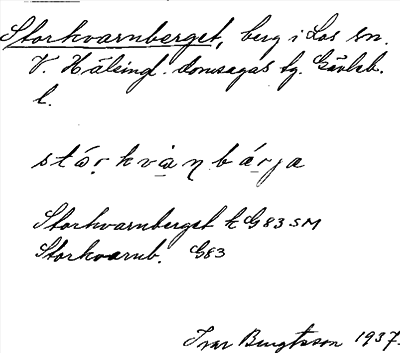 Storkvarnberget, berg i Los sn.
V. Hälsingl. domsagas tg. Gävleb.
l.
stórkvàn̥bárja
Storkvarnberget k G83SM
Storkvarnb. G83
Ivar Bengtsson 1937.